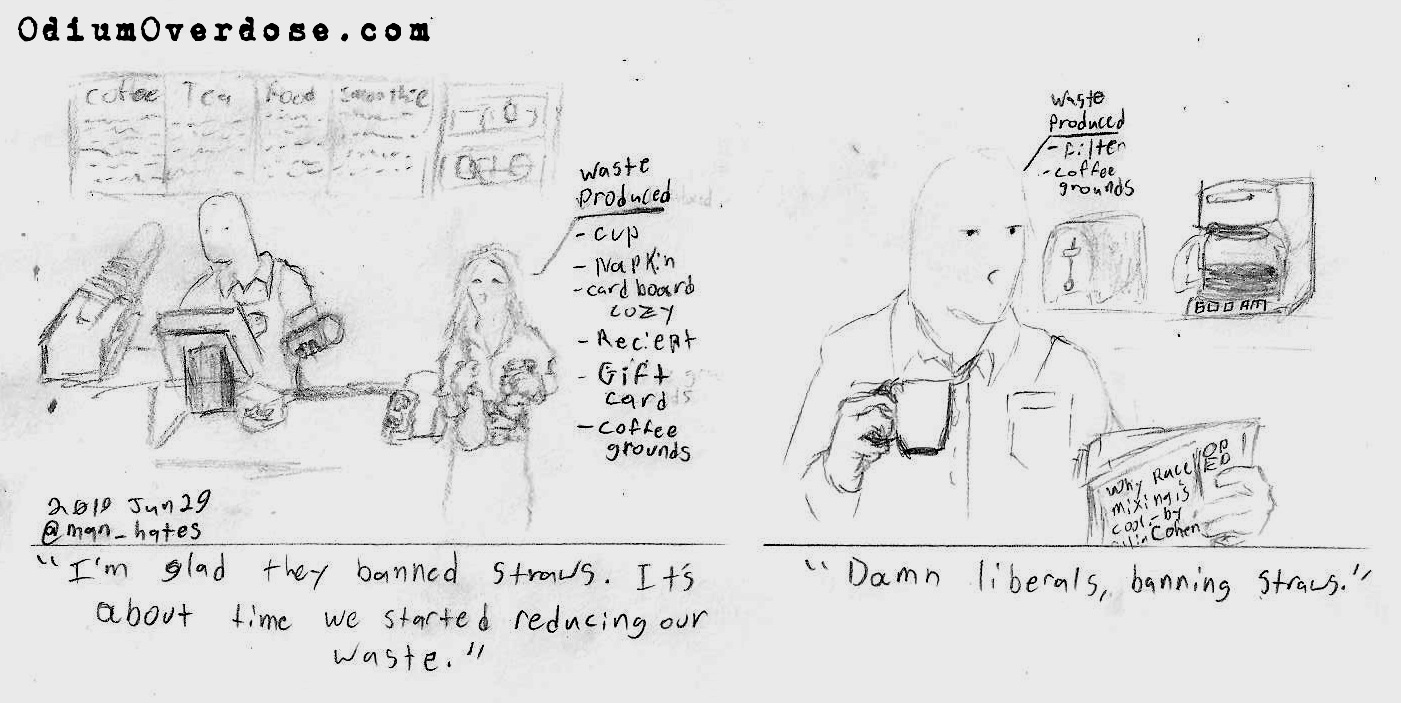 OdiumOverdose.com
coffee Tea Food Smoothie
Waste
Produced
- cup
- Napkin
- card board
cozy
- Reciept
- Gift
card
- coffee
grounds
2019 Jun 29
@man_hates
"I'm glad they banned straws. It's
about time we started reducing our
waste."
Waste
Produced
- filter
- coffee
grounds
600 AM
OP
ED
Why Race
mixing is
cool - by
Cohen
"Damn liberals, banning straws."